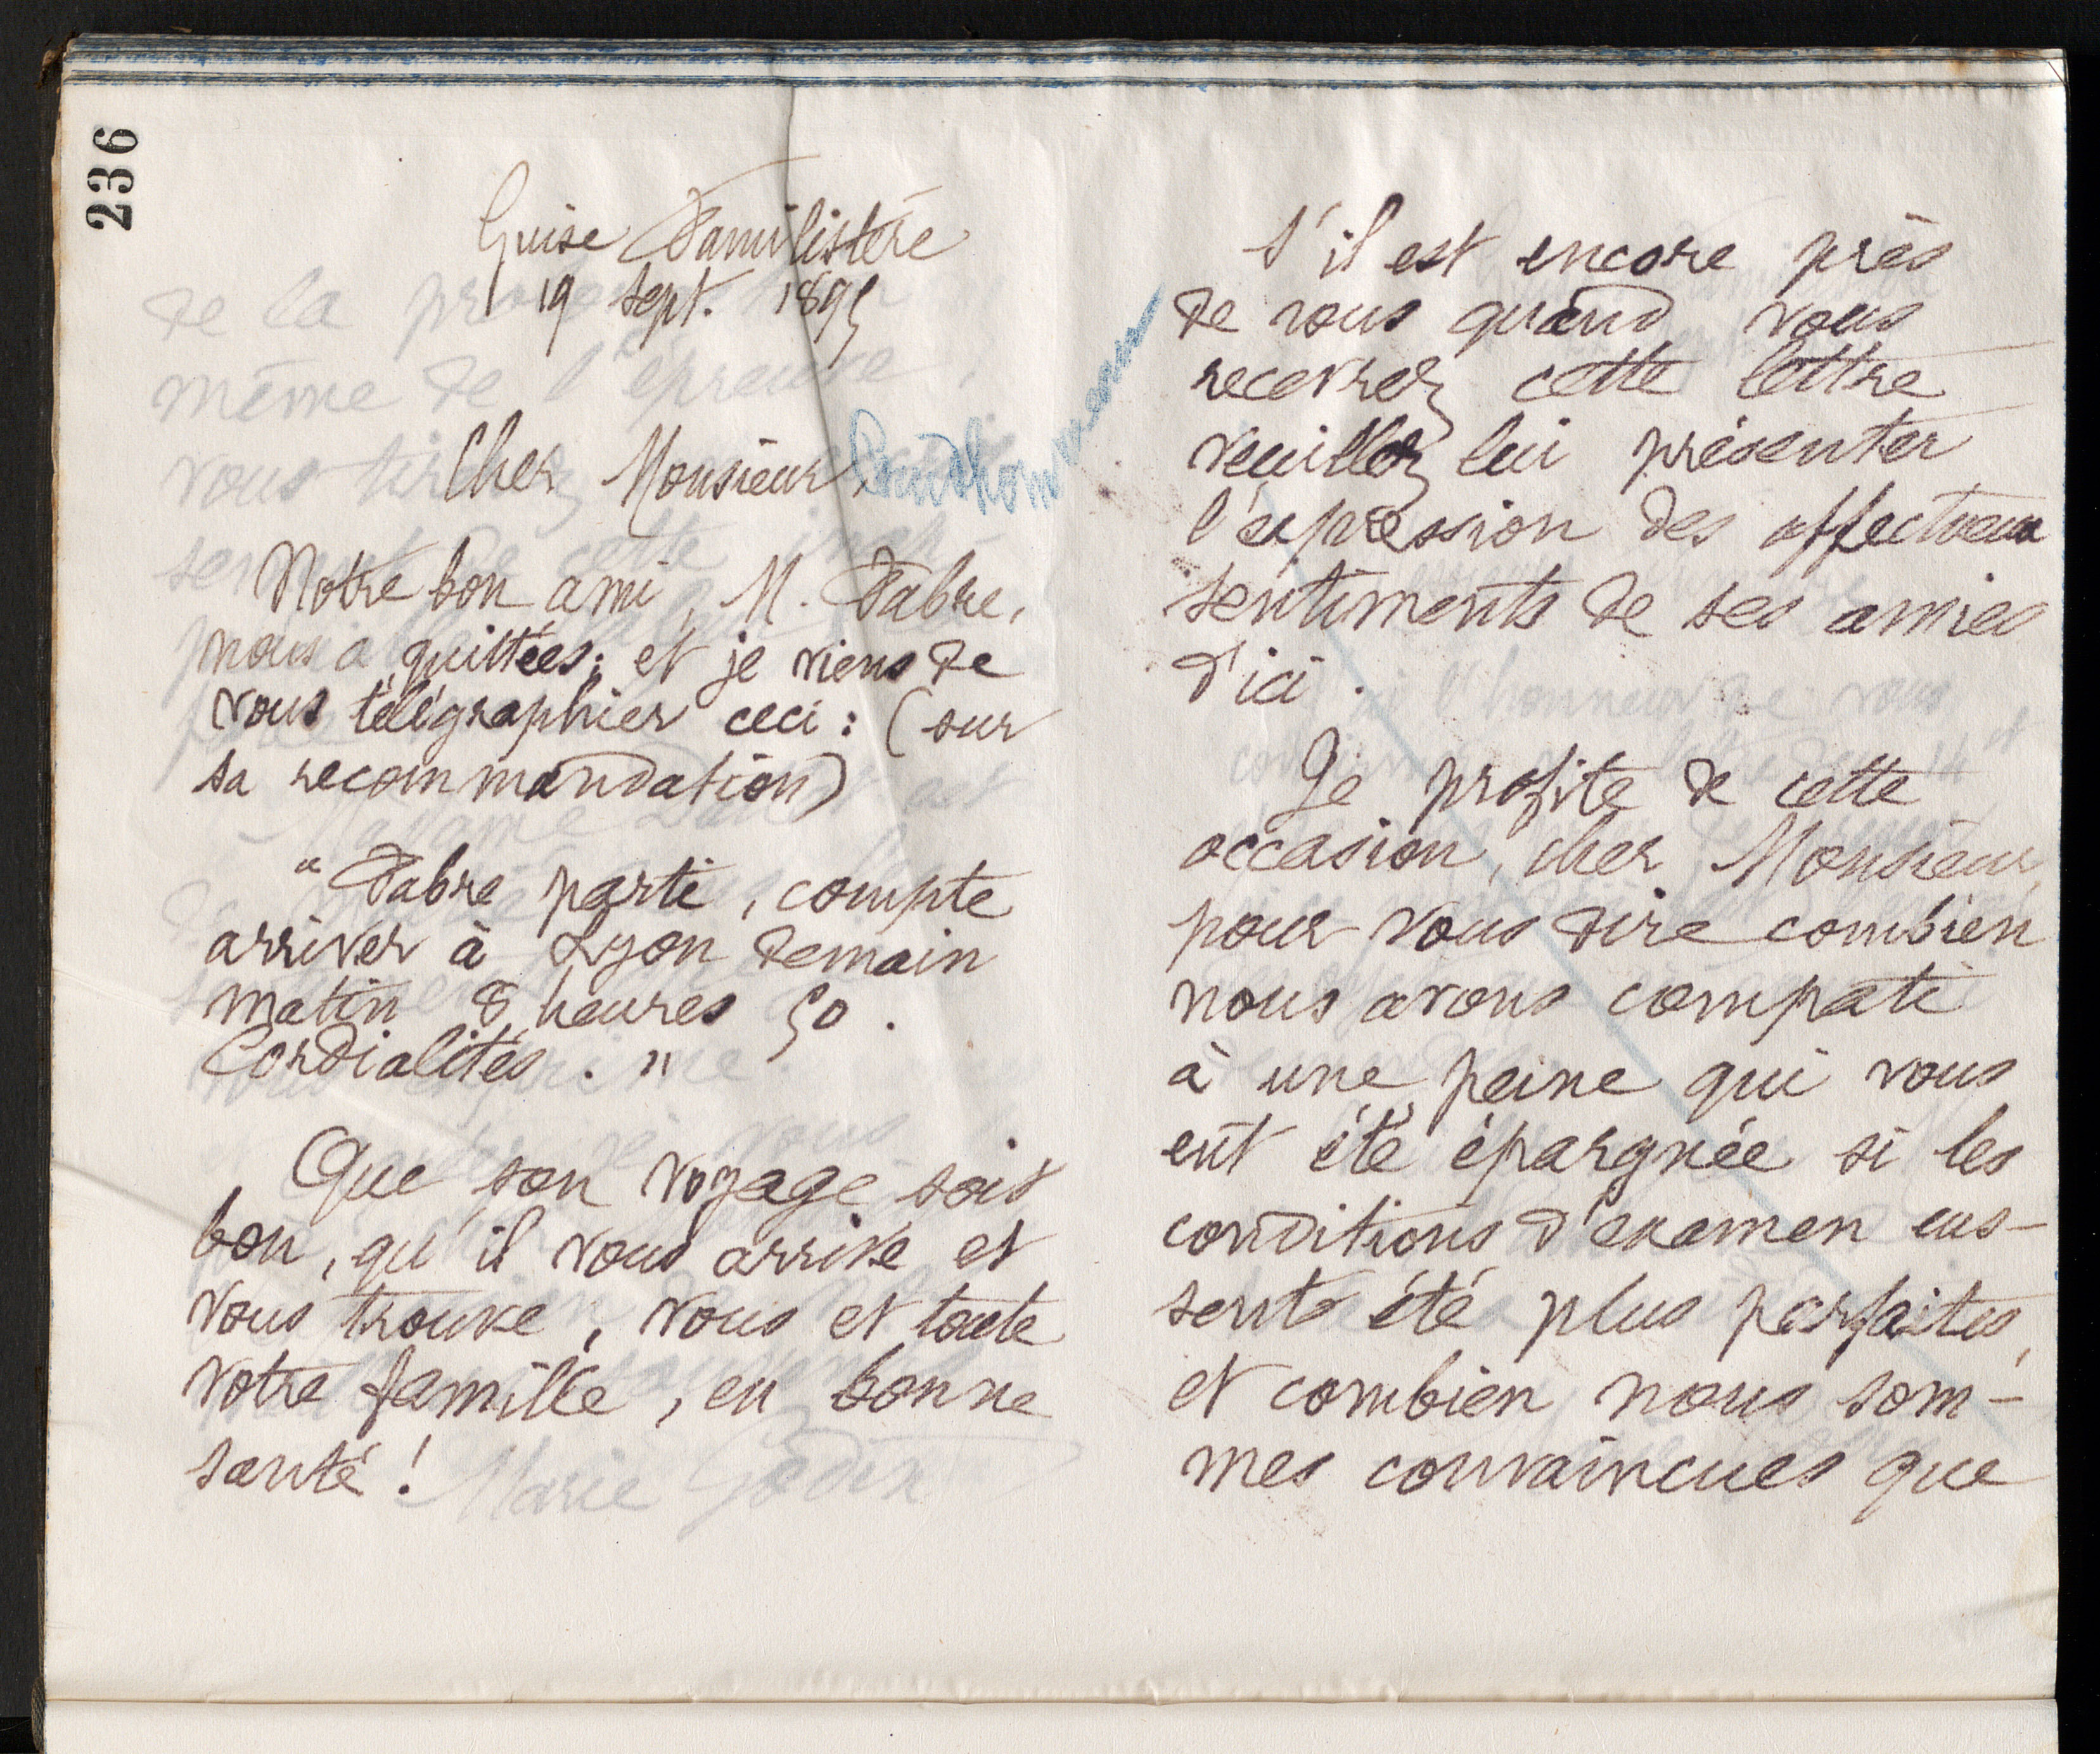 236
Guise Familistère
19 sept. 1895
Cher Monsieur,
Notre bon ami, M. Fabre,
nous a quittées; et je viens de
vous télégraphier ceci : (sur
sa recommandation)
"Fabre parti, compte
arriver à Lyon demain
matin 8 heures 50.
Cordialités."
Que son voyage soit
bon, qu'il vous arrive et
vous trouve, vous et toute
votre famille, en bonne
santé !
S'il est encore près
de vous quand vous
recevrez cette lettre
veuillez lui présenter
l'expression des affectueux
sentiments de ses amies
d'ici.
Je profite de cette
occasion, cher Monsieur,
pour vous dire combien
nous avons compati
à une peine qui vous
eût été épargnée si les
conditions d'examen eus-
sent été plus parfaites,
et combien nous som-
mes convaincues que